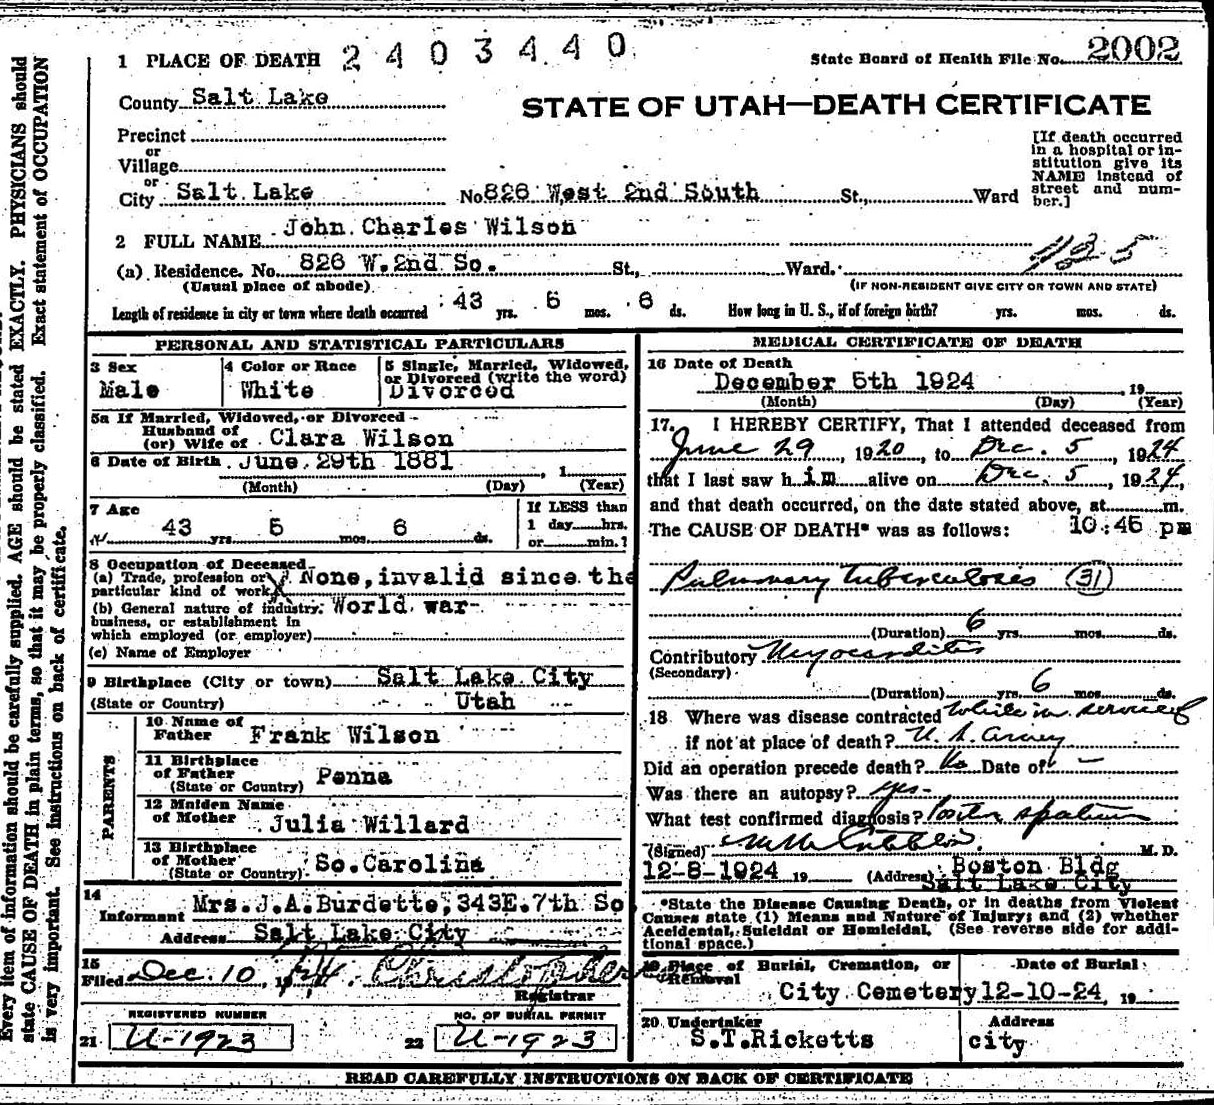 Every item of information should be carefully supplied. AGE should be stated EXACTLY. PHYSICIANS should
state CAUSE OF DEATH in plain terms, so that it may be properly classified. Exact statement of OCCUPATION
is very important. See instructions on back of certificate.
1 PLACE OF DEATH 2403440
State Board of Health File No. 2002
County Salt Lake
STATE OF UTAH—DEATH CERTIFICATE
Precinct
or
Village
or
City Salt Lake No 826 West 2nd South St., Ward
[If death occurred
in a hospital or in-
stitution give its
NAME instead of
street and num-
ber.]
2 FULL NAME John Charles Wilson
(a) Residence. No. 826 W. 2nd So. St., Ward.
(Usual place of abode) (IF NON-RESIDENT GIVE CITY OR TOWN AND STATE)
Length of residence in city or town where death occurred 43 yrs. 5 mos. 6 ds. How long in U. S., if of foreign birth? yrs. mos. ds.
PERSONAL AND STATISTICAL PARTICULARS
3 Sex
Male
4 Color or Race
White
5 Single, Married, Widowed,
or Divorced (write the word)
Divorced
5a If Married, Widowed, or Divorced
Husband of
(or) Wife of Clara Wilson
6 Date of Birth June 29th 1881 , 1
(Month) (Day) (Year)
7 Age
43 yrs. 5 mos. 6 ds.
If LESS than
1 day hrs.
or min.?
8 Occupation of Deceased
(a) Trade, profession or
particular kind of work None, invalid since the
(b) General nature of industry. World war
business, or establishment in
which employed (or employer)
(c) Name of Employer
9 Birthplace (City or town) Salt Lake City
(State or Country) Utah
PARENTS
10 Name of
Father Frank Wilson
11 Birthplace
of Father
(State or Country) Penna
12 Maiden Name
of Mother Julia Willard
13 Birthplace
of Mother
(State or Country) So. Carolina
14
Informant Mrs. J.A. Burdette, 343E. 7th So
Address Salt Lake City
15
Filed Dec. 10, 19 24
Registrar
REGISTERED NUMBER
21 U-1923
NO. OF BURIAL PERMIT
22 U-1923
MEDICAL CERTIFICATE OF DEATH
16 Date of Death
December 5th 1924 , 19
(Month) (Day) (Year)
17. I HEREBY CERTIFY, That I attended deceased from
June 29, 1920, to Dec. 5, 1924
that I last saw h im alive on Dec. 5, 1924,
and that death occurred, on the date stated above, at m.
The CAUSE OF DEATH* was as follows: 10:45 pm
Pulmonary tuberculosis (31)
(Duration) 6 yrs. mos. ds.
Contributory Myocarditis
(Secondary)
(Duration) yrs. 6 mos. ds.
18 Where was disease contracted While in service of
if not at place of death? U. S. Army
Did an operation precede death? No Date of —
Was there an autopsy? yes
What test confirmed diagnosis?
(Signed) M. D.
12-8-1924 19 (Address) Boston Bldg
Salt Lake City
*State the Disease Causing Death, or in deaths from Violent
Causes state (1) Means and Nature of Injury; and (2) whether
Accidental, Suicidal or Homicidal. (See reverse side for addi-
tional space.)
19 Place of Burial, Cremation, or
Removal
City Cemetery
Date of Burial
12-10-24, 19
20 Undertaker
S.T.Ricketts
Address
city
READ CAREFULLY INSTRUCTIONS ON BACK OF CERTIFICATE